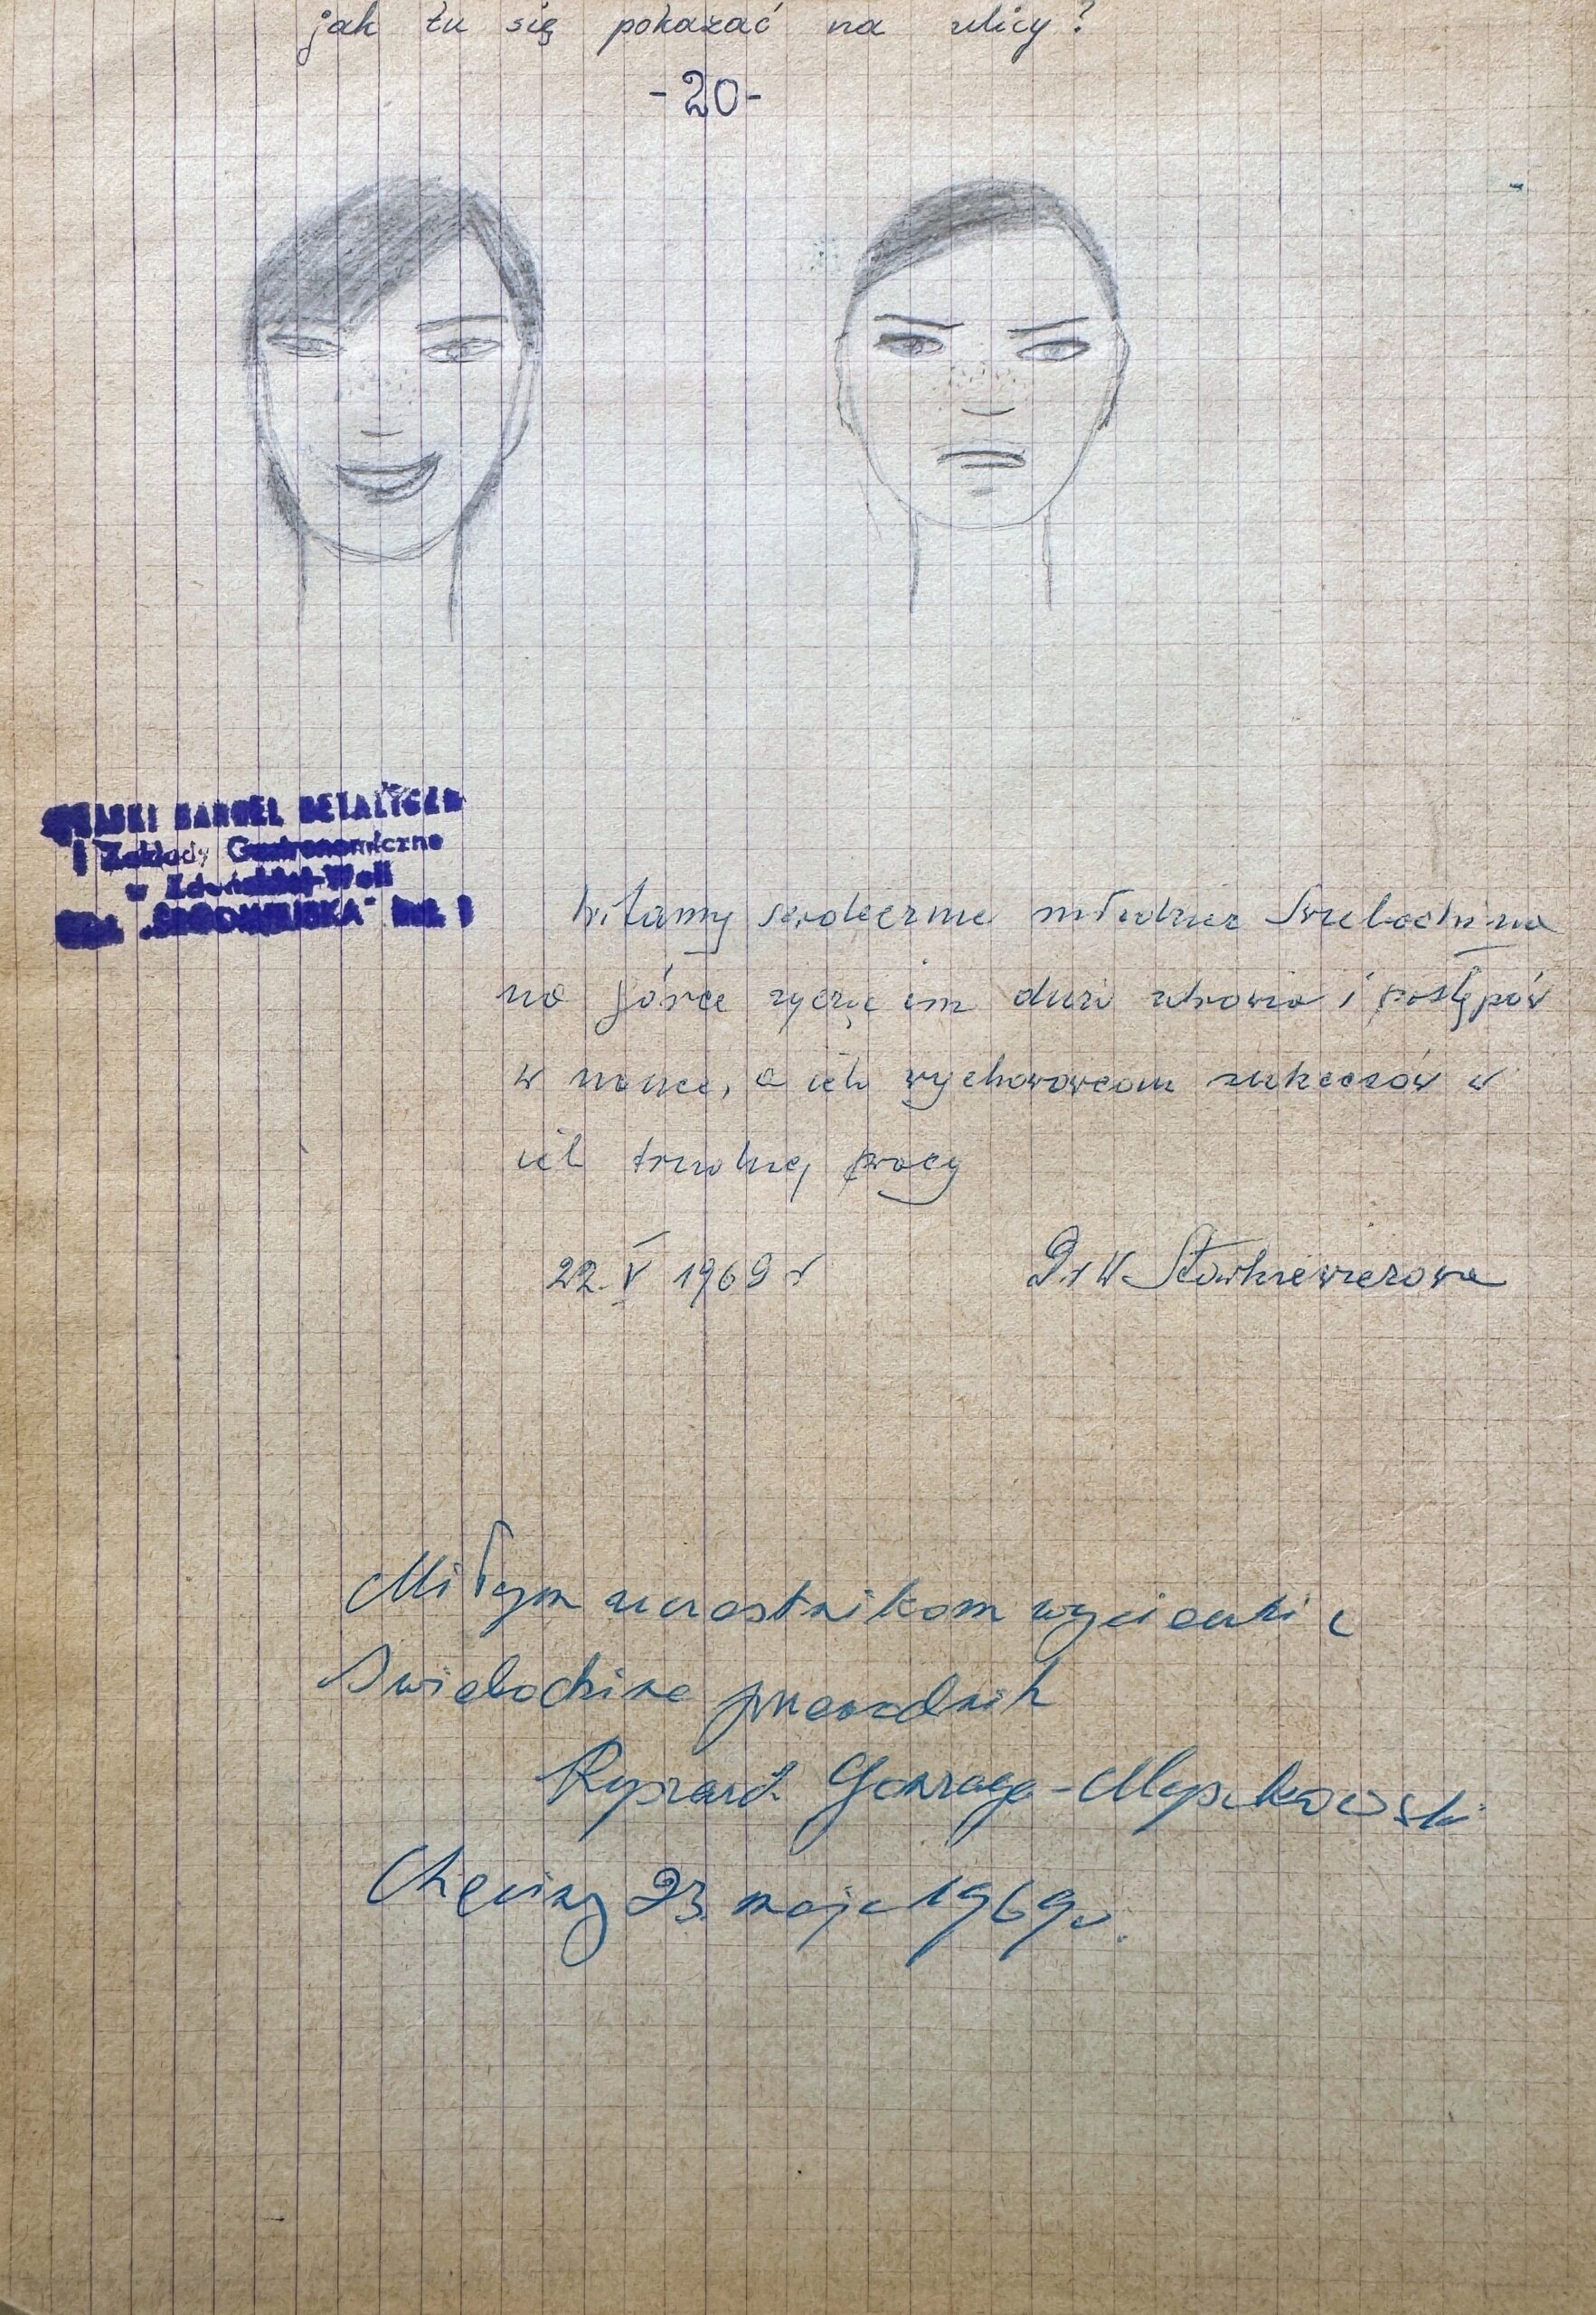 jak tu się pokazać na ulicy?
-20-
HANDEL DETALICZN
Zakłady Gastronomiczne
w Zduńskiej-Woli
Witamy serdecznie młodzież Świebodzina
na górce życzę im dużo zdrowia i postępów
w nauce, a ich wychowawcom sukcesów w
ich trudnej pracy
22.V 1969 r
Dr W. Stankiewiczowa
Miłym uczestnikom wycieczki z
Świebodzina przewodnik
Ryszard Gonzaga-Myszkowski
Chęciny 23. maja 1969 r.